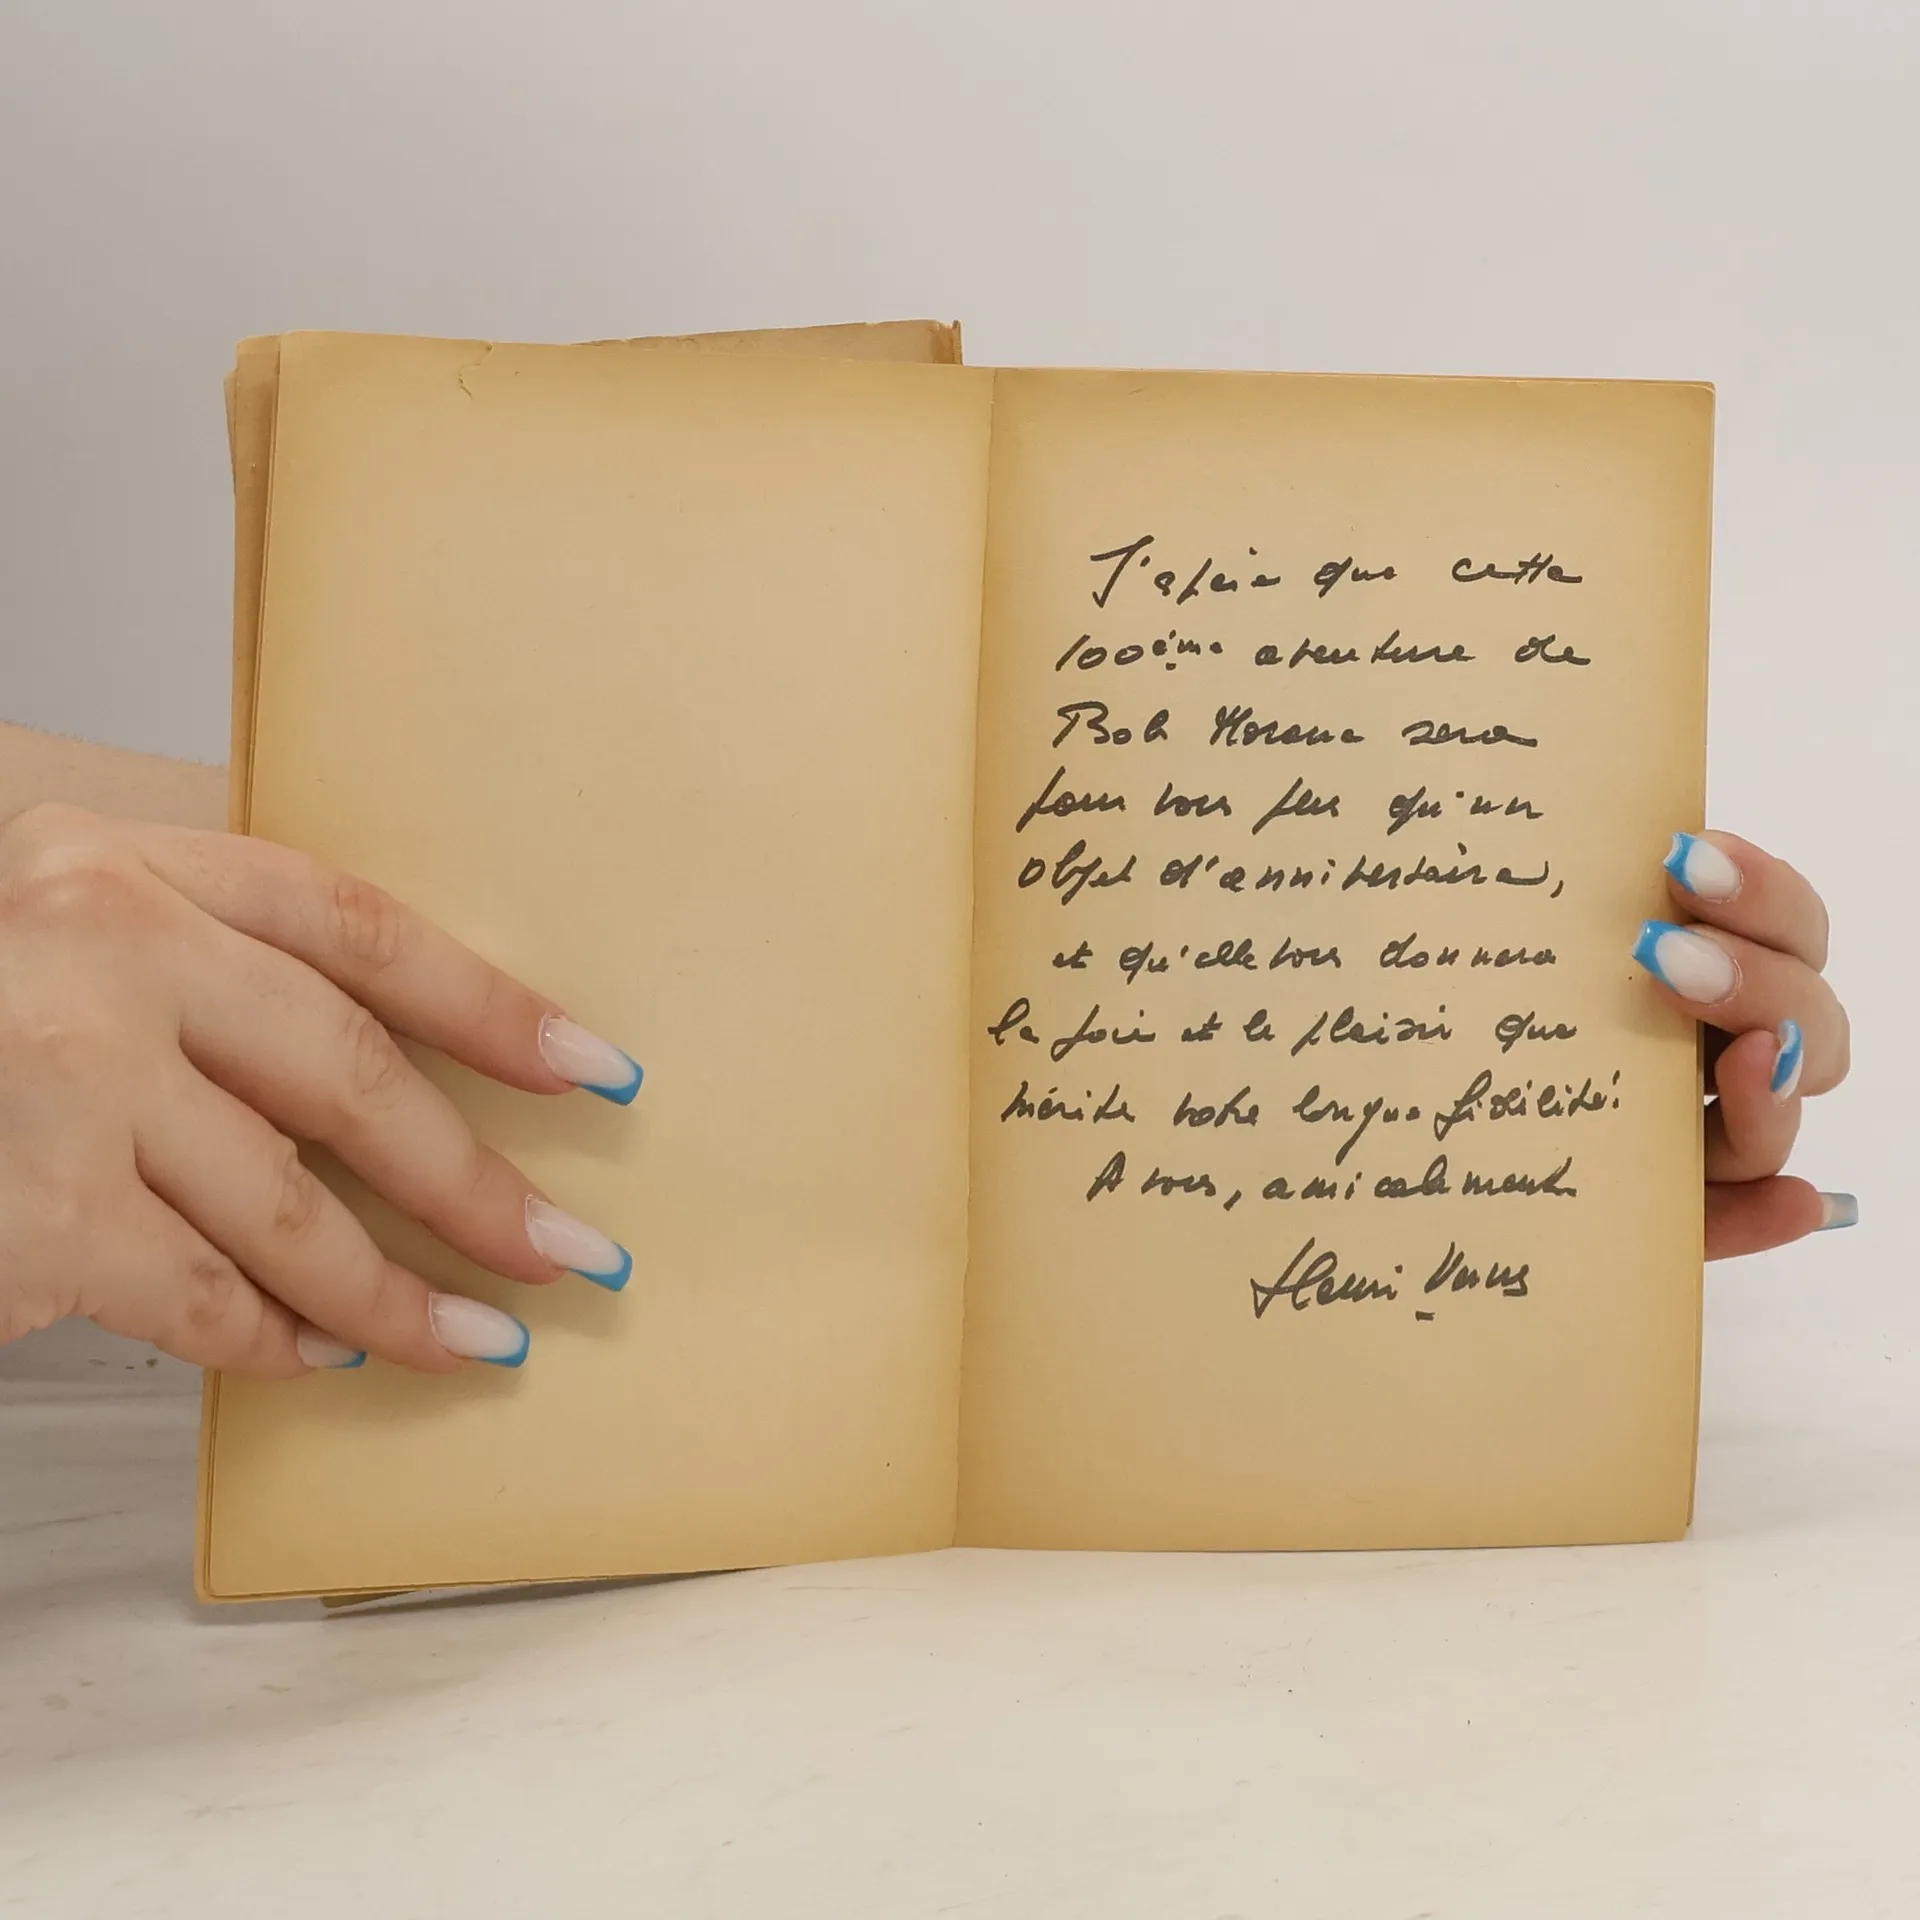 J'espère que cette
100ème aventure de
Bob Morane sera
pour vous plus qu'un
objet d'anniversaire,
et qu'elle vous donnera
la joie et le plaisir que
mérite votre longue fidélité.
A vous, amicalement
Henri Vernes